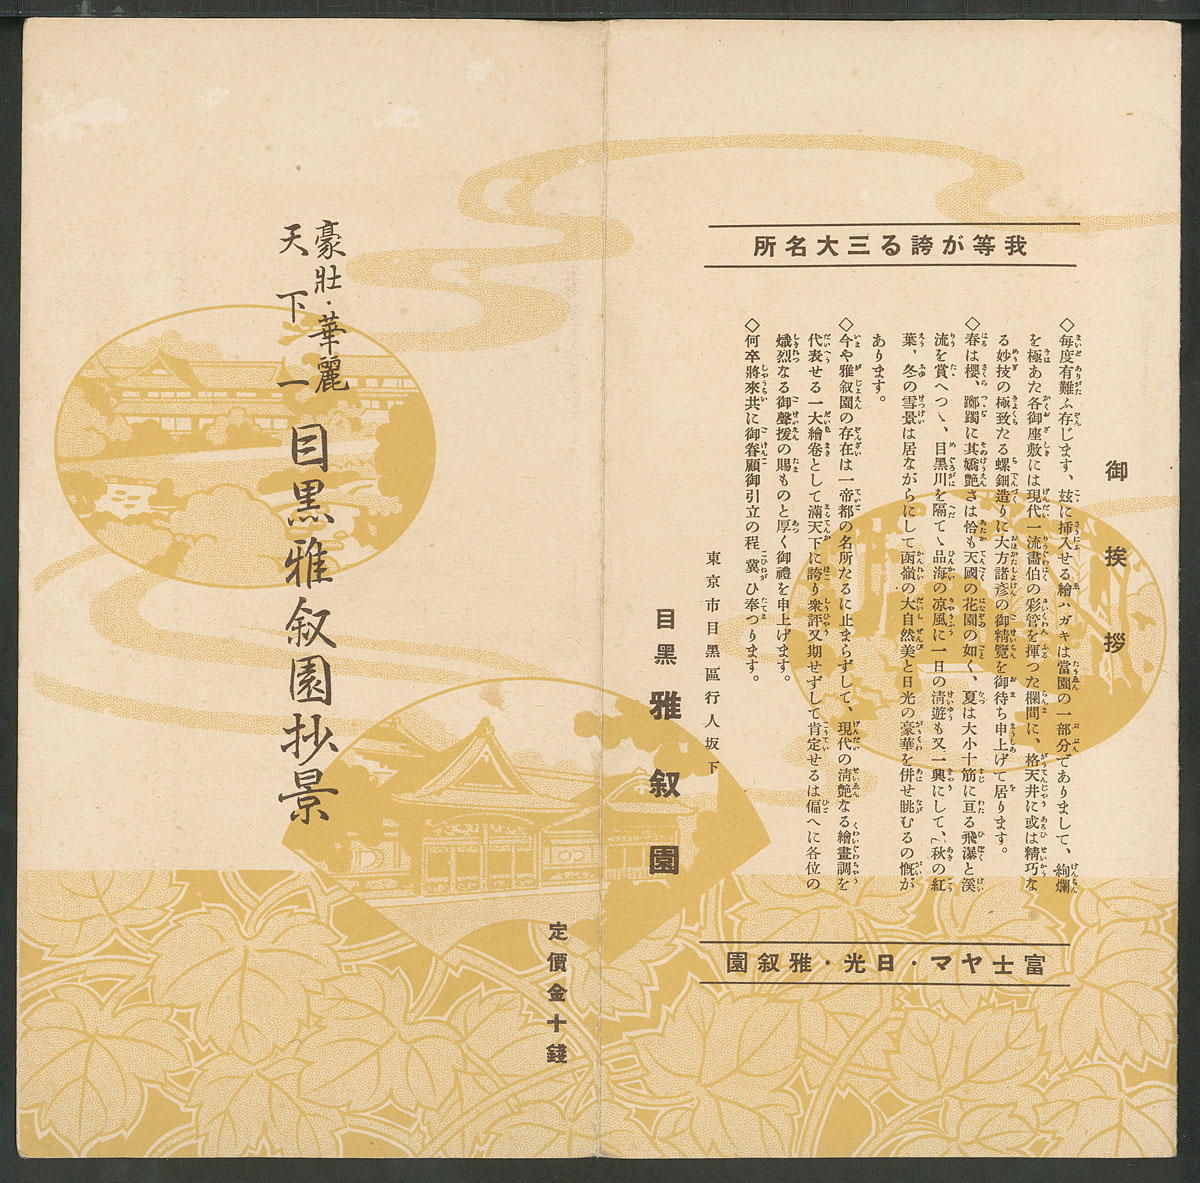 我等が誇る三大名所
御挨拶
◇毎度有難ふ存じます、玆に挿入せる繪ハガキは當園の一部分でありまして、絢爛
を極あた各御座敷には現代一流畵伯の彩管を揮つた欄間に、格天井に或は精巧な
る妙技の極致たる螺鈿造りに大方諸彦の御精覽を御待ち申上げて居ります。
◇春は櫻、躑躅に其嬌艶さは恰も天國の花園の如く、夏は大小十筋に亘る飛瀑と溪
流を賞へつゝ、目黑川を隔てゝ品海の凉風に一日の淸遊も又一興にして、秋の紅
葉、冬の雪景は居ながらにして函嶺の大自然美と日光の豪華を併せ眺むるの慨が
あります。
◇今や雅叙園の存在は一帝都の名所たるに止まらずして、現代の淸艶なる繪畫調を
代表せる一大繪卷として滿天下に誇り衆評又期せずして肯定せるは偏へに各位の
熾烈なる御聲援の賜ものと厚く御禮を申上げます。
◇何卒將來共に御眷顧御引立の程、冀ひ奉つります。
東京市目黑區行人坂下
目黑 雅叙園
富士ヤマ・日光・雅叙園
定價金十錢
豪壯・華麗
天下一
目黒雅叙園抄景